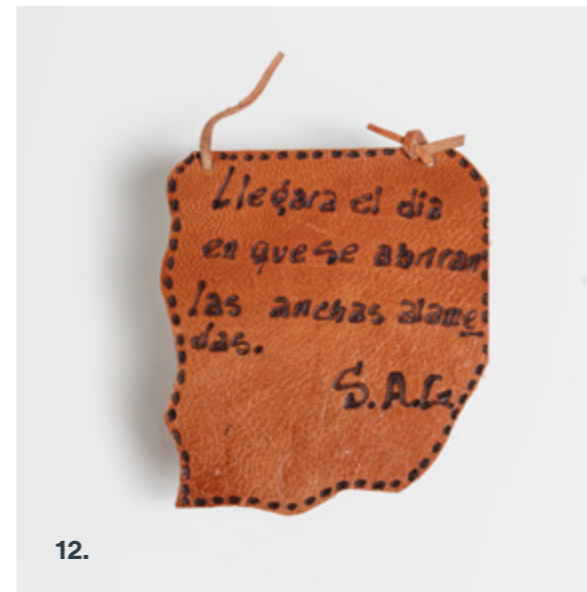 Llegara el dia
en que se abriran
las anchas alame
das.
S.A.G.
12.